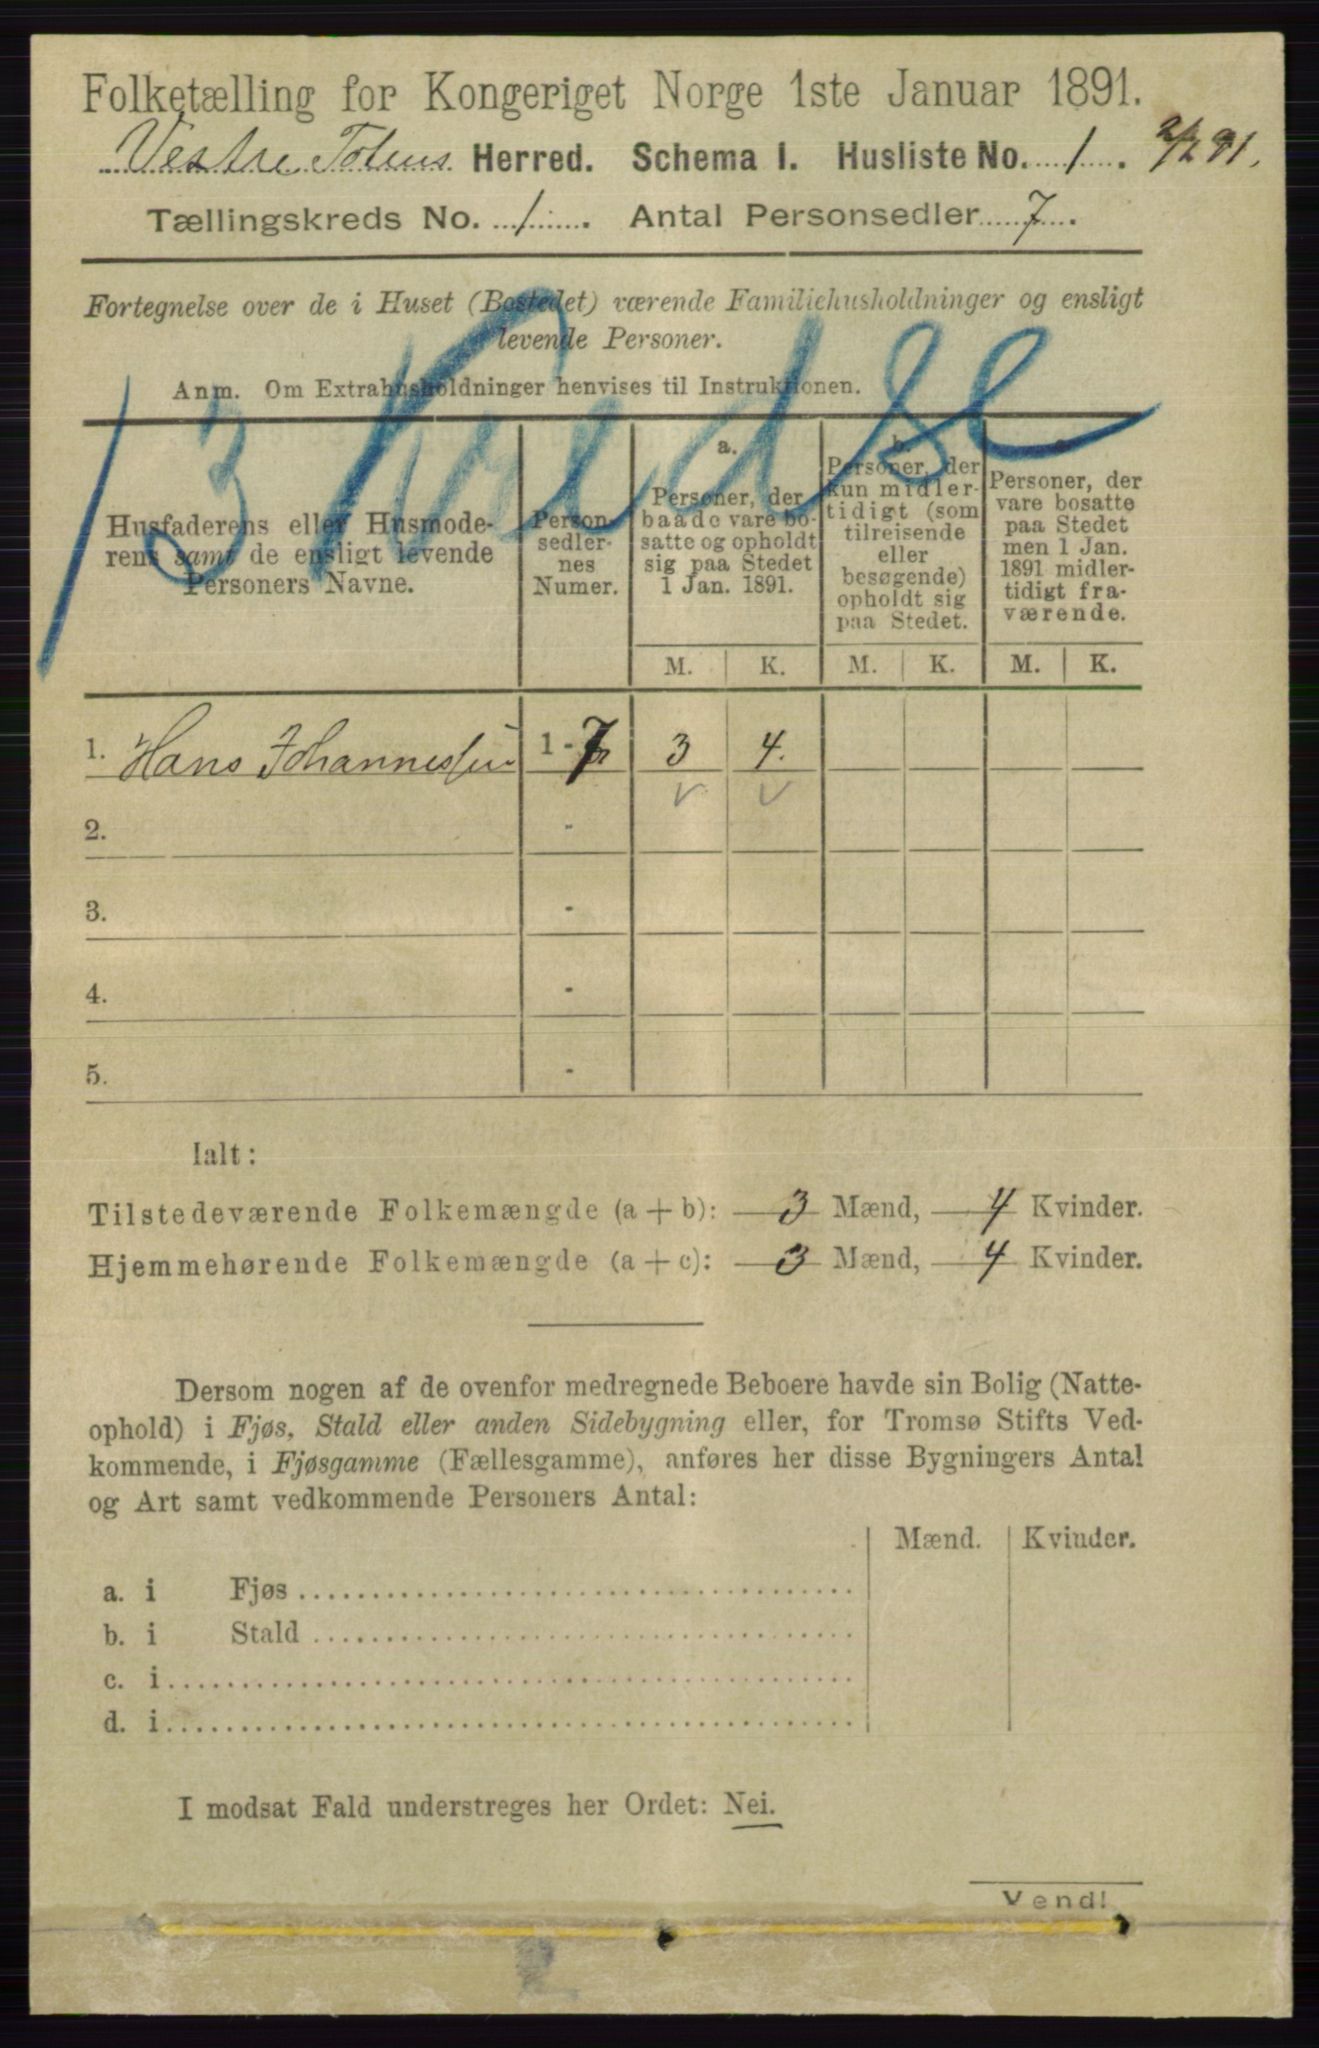 Folketælling for Kongeriget Norge 1ste Januar 1891.
Vestre Totens Herred. Schema I. Husliste No. 1. 2/2 91.
Tællingskreds No. 1. Antal Personsedler 7.
Fortegnelse over de i Huset (Bostedet) værende Familiehusholdninger og ensligt
levende Personer.
Anm. Om Extrahusholdninger henvises til Instruktionen.
13 Kredse
Husfaderens eller Husmode-
rens samt de ensligt levende
Personers Navne.
Person-
sedler-
nes
Numer.
a.
Personer, der
baade vare bo-
satte og opholdt
sig paa Stedet
1 Jan. 1891.
b.
Personer, der
kun midler-
tidigt (som
tilreisende
eller
besøgende)
opholdt sig
paa Stedet.
c.
Personer, der
vare bosatte
paa Stedet
men 1 Jan.
1891 midler-
tidigt fra-
værende.
M. K. M. K. M. K.
1. Hans Johannessen 1 - 7 3 4.
2. -
3. -
4. -
5. -
Ialt:
Tilstedeværende Folkemængde (a + b): 3 Mænd, 4 Kvinder.
Hjemmehørende Folkemængde (a + c): 3 Mænd, 4 Kvinder.
Dersom nogen af de ovenfor medregnede Beboere havde sin Bolig (Natte-
ophold) i Fjøs, Stald eller anden Sidebygning eller, for Tromsø Stifts Ved-
kommende, i Fjøsgamme (Fællesgamme), anføres her disse Bygningers Antal
og Art samt vedkommende Personers Antal:
Mænd. Kvinder.
a. i Fjøs
b. i Stald
c. i
d. i
I modsat Fald understreges her Ordet: Nei.
Vend!
2